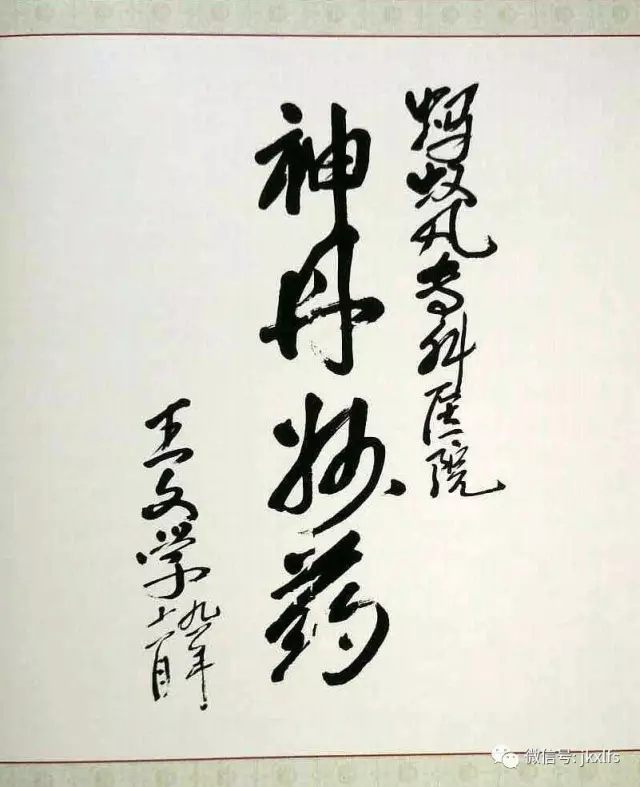 风专科医院
神丹妙药
王文学
九一年
十一月
微信号: jkxlfs